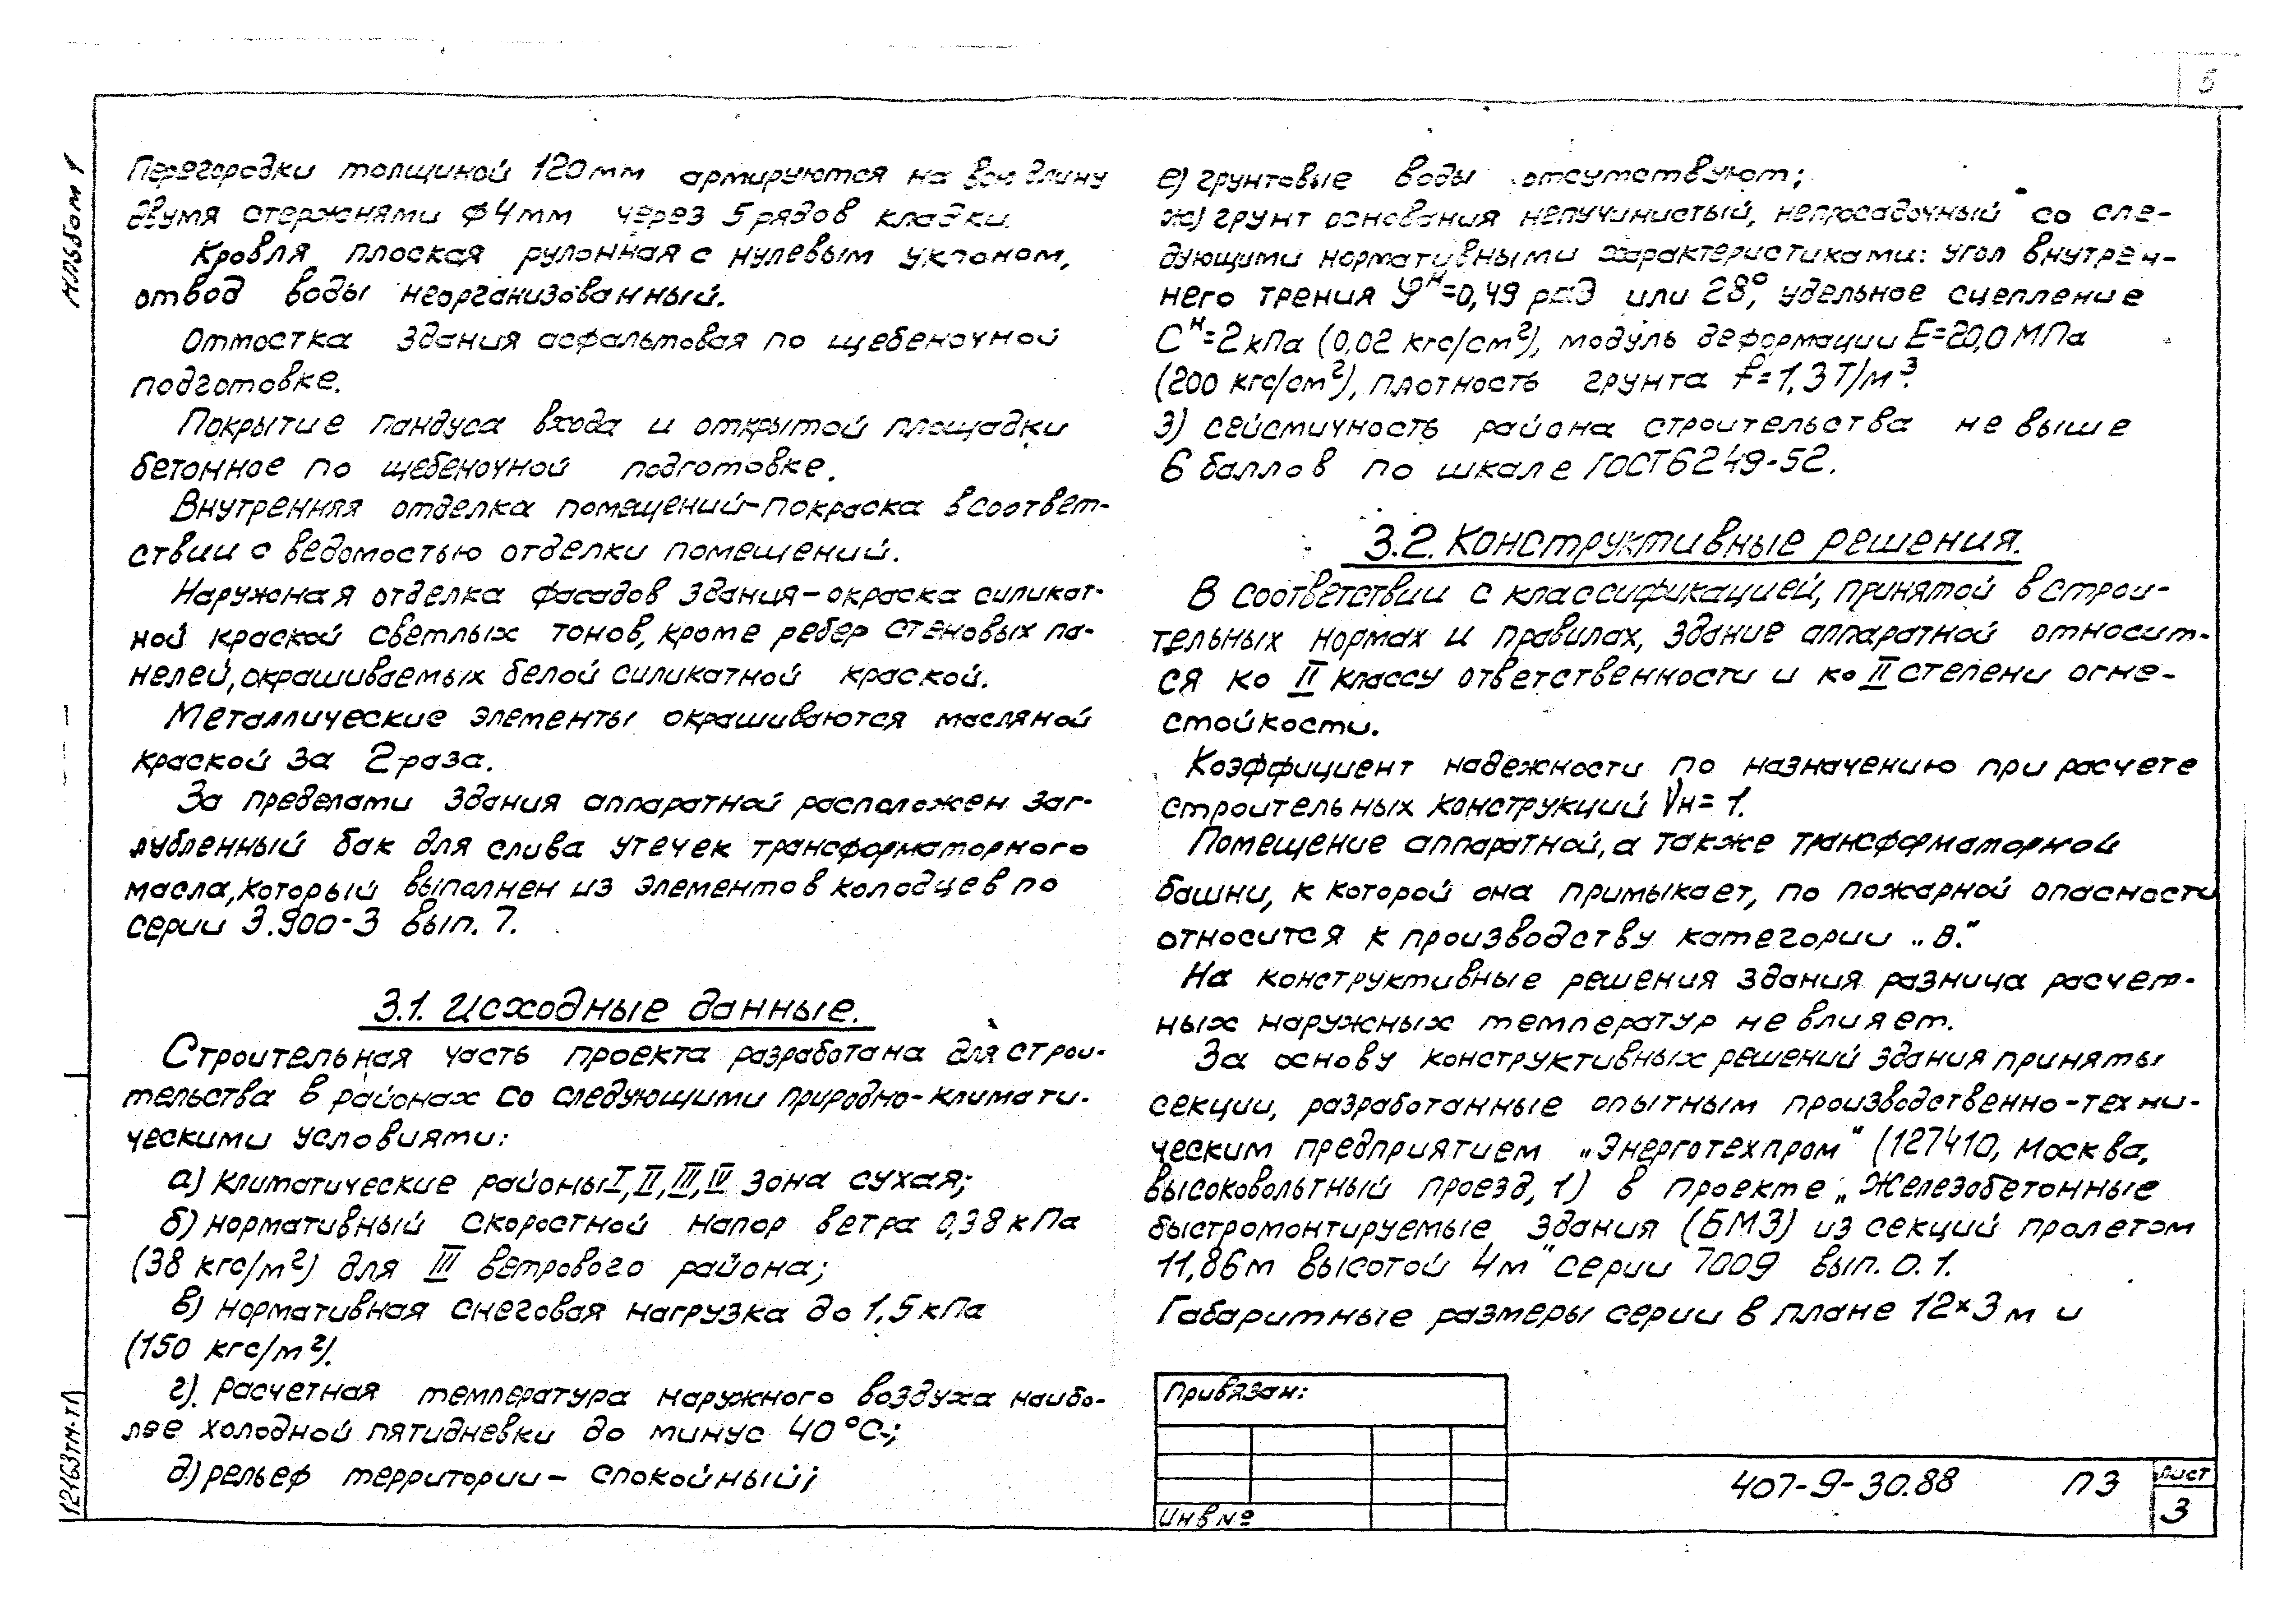 5
Альбом 1
Перегородки толщиной 120мм армируются на всю длину
двумя стержнями ф4мм через 5 рядов кладки.
Кровля плоская рулонная с нулевым уклоном,
отвод воды неорганизованный.
Отмостка здания асфальтовая по щебеночной
подготовке.
Покрытие пандуса входа и открытой площадки
бетонное по щебеночной подготовке.
Внутренняя отделка помещений-покраска в соответ-
ствии с ведомостью отделки помещений.
Наружная отделка фасадов здания-окраска силикат-
ной краской светлых тонов, кроме ребер стеновых па-
нелей, окрашиваемых белой силикатной краской.
Металлические элементы окрашиваются масляной
краской за 2 раза.
За пределами здания аппаратной расположен заг-
лубленный бак для слива утечек трансформаторного
масла, который выполнен из элементов колодцев по
серии 3.900-3 вып. 7.
3.1. Исходные данные.
Строительная часть проекта разработана для строи-
тельства в районах со следующими природно-климати-
ческими условиями:
а) климатические районы I, II, III, IV зона сухая;
б) нормативный скоростной напор ветра 0,38 кПа
(38 кгс/м²) для III ветрового района;
в) нормативная снеговая нагрузка до 1,5 кПа
(150 кгс/м²).
г). Расчетная температура наружного воздуха наибо-
лее холодной пятидневки до минус 40°С-;
д.) рельеф территории - спокойный;
е) грунтовые воды отсутствуют;
ж) грунт основания непучинистый, непросадочный со сле-
дующими нормативными характеристиками: угол внутрен-
него трения φᴴ=0,49 рад или 28°, удельное сцепление
Cᴴ=2кПа (0,02 кгс/см²), модуль деформации E=20,0 МПа
(200 кгс/см²), плотность грунта f=1,3 Т/м³.
з) сейсмичность района строительства не выше
6 баллов по шкале ГОСТ 6249-52.
3.2. Конструктивные решения.
В соответствии с классификацией, принятой в строи-
тельных нормах и правилах, здание аппаратной относит-
ся ко II классу ответственности и ко II степени огне-
стойкости.
Коэффициент надежности по назначению при расчете
строительных конструкций γн=1.
Помещение аппаратной, а также трансформаторной
башни, к которой она примыкает, по пожарной опасности
относится к производству категории „В."
На конструктивные решения здания разница расчет-
ных наружных температур не влияет.
За основу конструктивных решений здания приняты
секции, разработанные опытным производственно-техни-
ческим предприятием „Энерготехпром" (127410, Москва,
высоковольтный проезд, 1) в проекте „Железобетонные
быстромонтируемые здания (БМЗ) из секций пролетом
11,86м высотой 4м" серии 7009 вып. 0.1.
Габаритные размеры серии в плане 12×3м и
Привязан:
Инв №
407-9-30.88 ПЗ
Лист
3
12163тм-т1